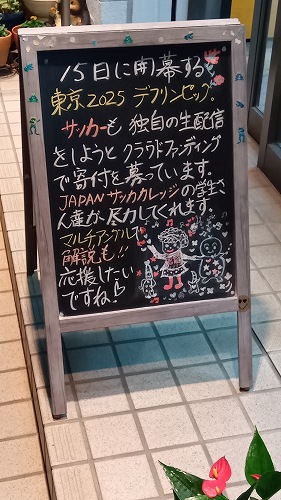 15日に開幕する
東京2025 デフリンピック。
サッカーも 独自の生配信
をしようと クラウドファンディング
で寄付を募っています。
JAPANサッカーカレッジの学生さ
ん達が尽力してくれます。
マルチアングルで
解説も!!
応援したい
ですね!